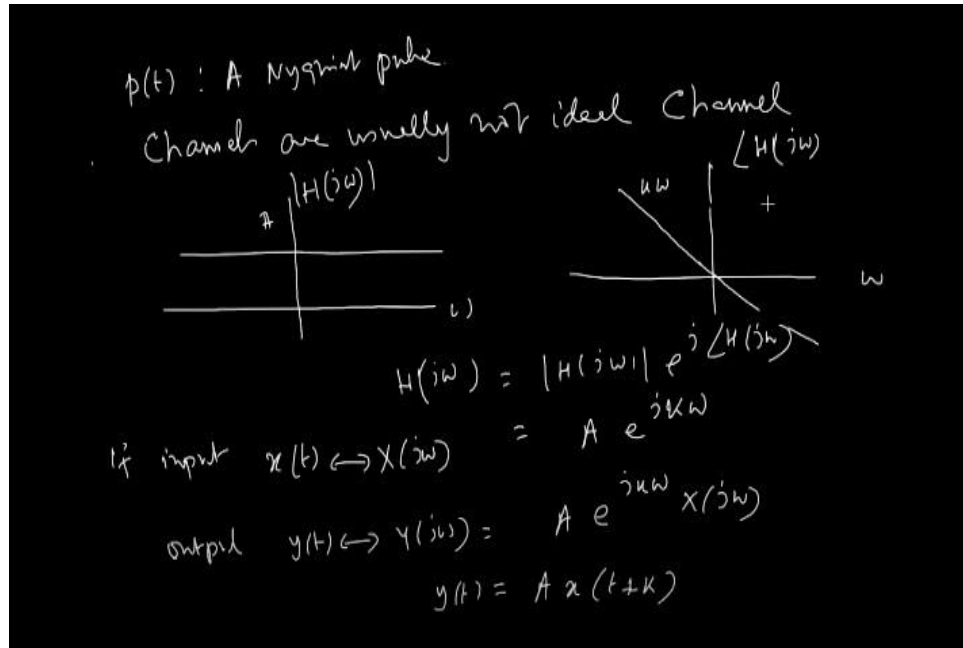 p(t) : A Nyquist pulse.
Channels are usually not ideal Channel
|H(jω)|
A
ω
∠H(jω)
κω
+
ω
H(jω) = |H(jω)| e^{j∠H(jω)}
= A e^{jκω}
If input x(t) ↔ X(jω)
output y(t) ↔ Y(jω) = A e^{jκω} X(jω)
y(t) = A x(t+κ)